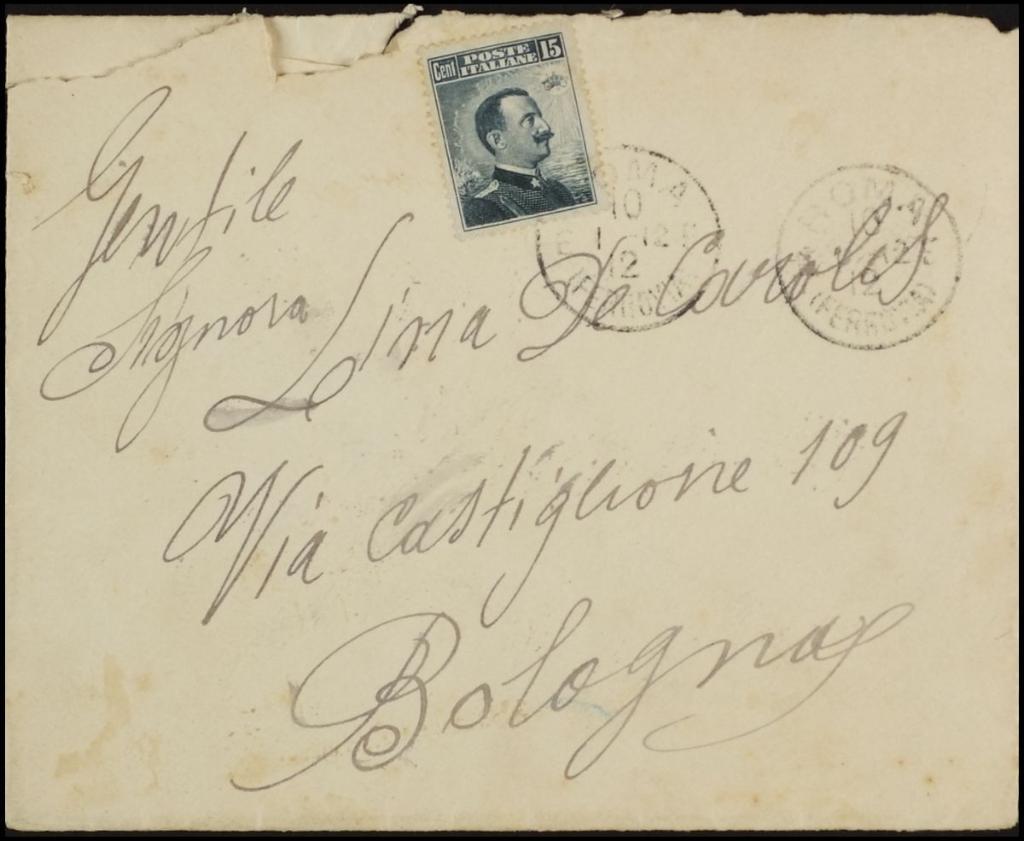 Cent POSTE ITALIANE 15
ROMA
10
1-12
12
(FERROVIA)
ROMA
10
12
12
(FERROVIA)
Gentile
Signora Lina De Carolis
Via Castiglione 109
Bologna